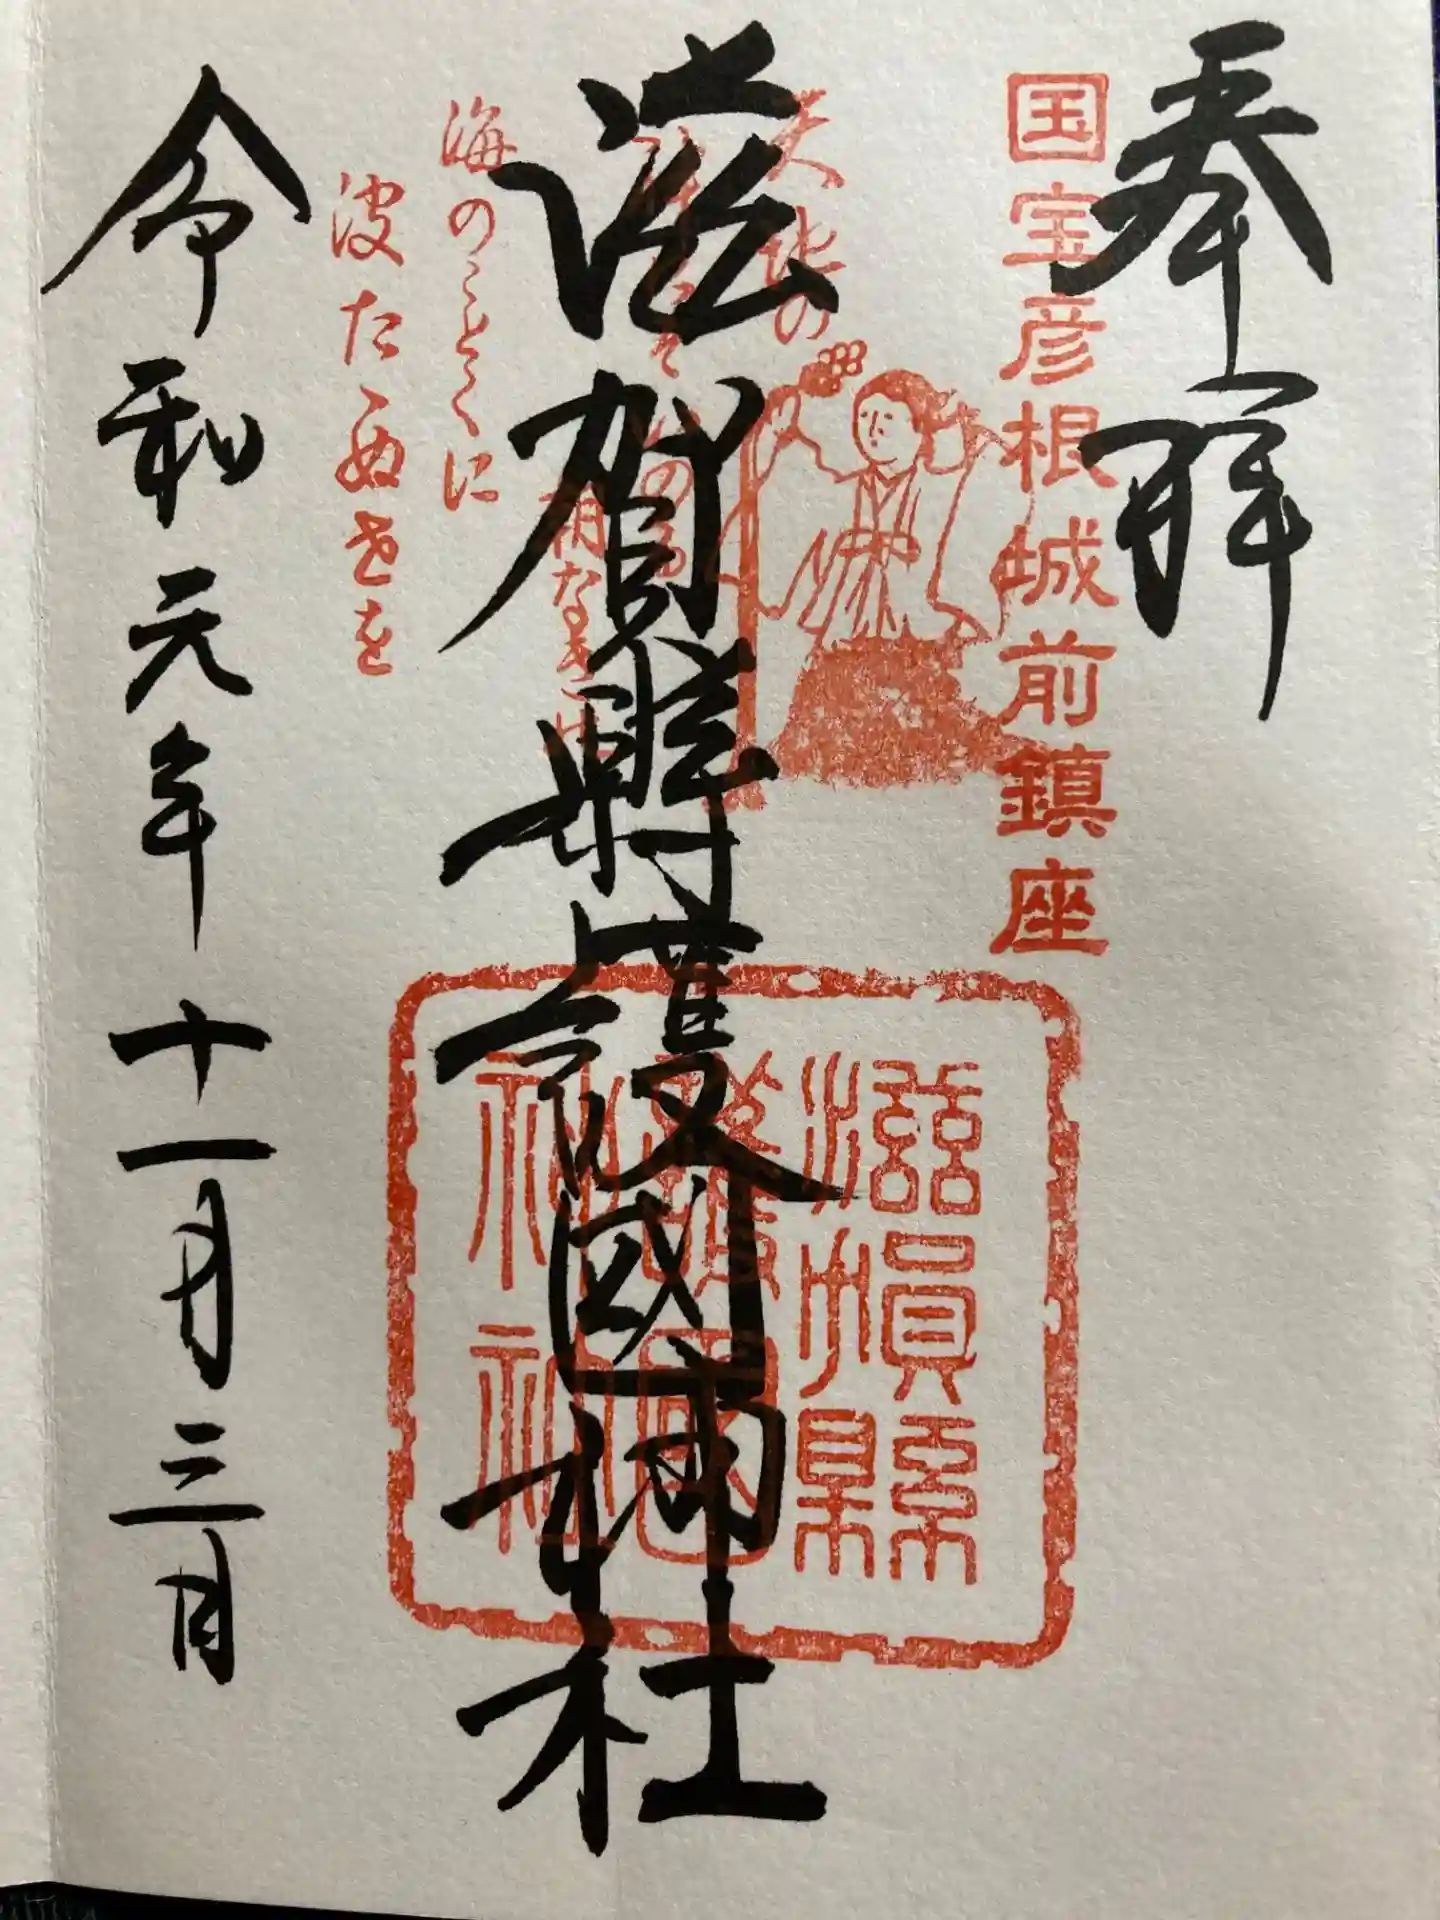 奉拝
国宝彦根城前鎮座
天地の
朝なきの
海のことくに
波たゝぬ世を
滋賀縣護國神社
滋賀縣
護國
神社
令和元年十一月三日